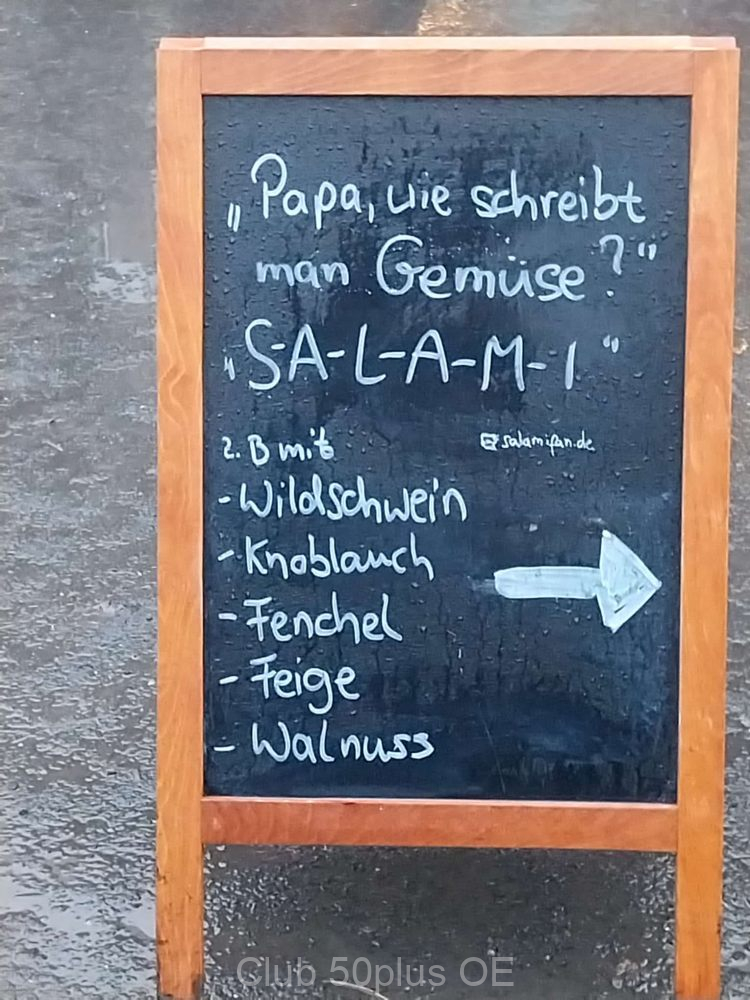 „Papa, wie schreibt
man Gemüse?“
„S-A-L-A-M-I“
z. B mit
salamifan.de
-Wildschwein
-Knoblauch
-Fenchel
-Feige
-Walnuss
Club 50plus OE